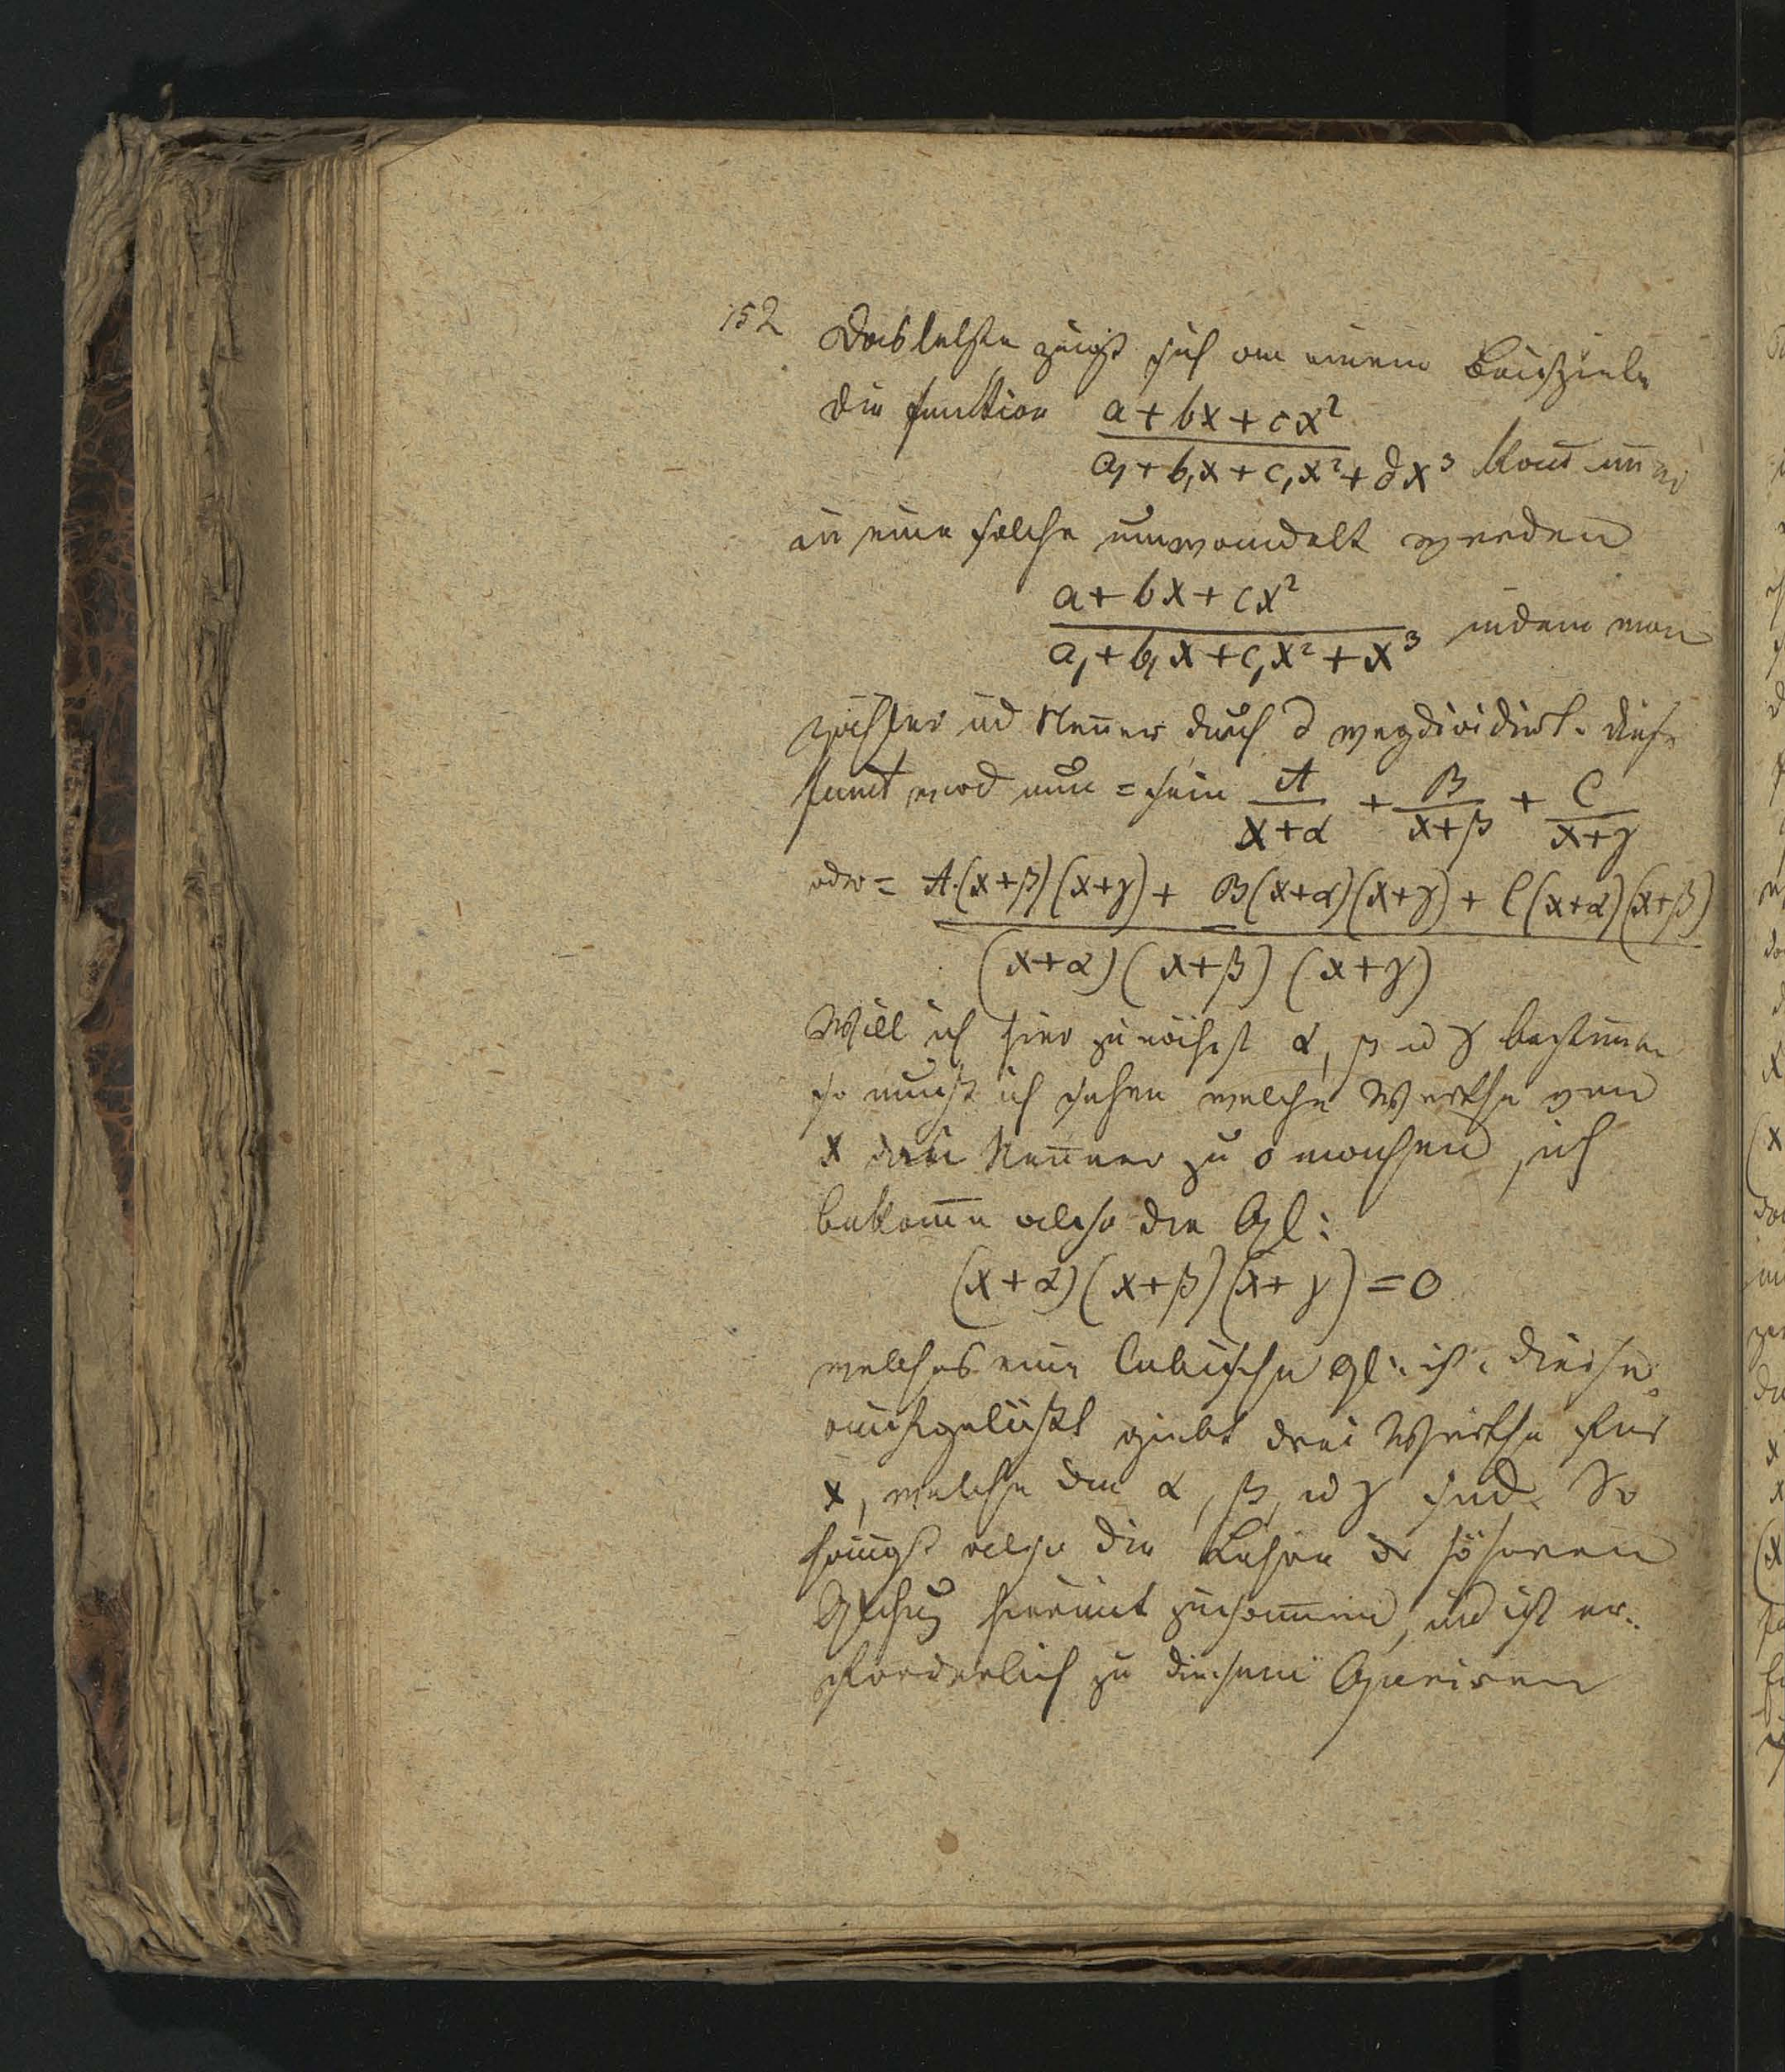 152 Das letzte zeigt sich an einem Beispiele
die function a + bx + cx²
a, + b,x + c,x² + dx³ kañ im̃er
in eine solche umwandelt werden
a + bx + cx²
a, + b,x + c,x² + x³ indem man
Zähler ud Neñer durch d wegdividirt. Diese
funct wird nun = sein A/x+α + B/x+β + C/x+γ
oder = A.(x+β)(x+γ) + B(x+α)(x+γ) + C(x+α)(x+β)
(x+α)(x+β)(x+γ)
Will ich hier zunächst α, β ud γ bestim̃en
so muß ich sehen welche Werthe von
x den Neñer zu 0 machen, ich
bekom̃e also die Gl:
(x+α)(x+β)(x+γ) = 0
welches eine cubische Gl: ist. Diese
aufgelößt giebt drei Werthe für
x, welche die α, β, ud γ sind. So
hängt also die Lehre der höheren
hiermit zusam̃en, ud ist er-
forderlich zu diesem